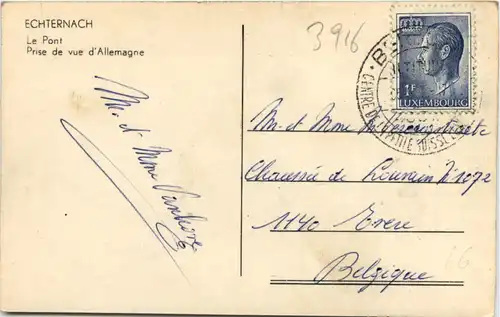 ECHTERNACH
Le Pont
Prise de vue d'Allemagne
3916
1F
LUXEMBOURG
CENTRE DE
SUISSE
M. et Mme
M. et Mme
Chaussée de Louvain N. 1072
1140 Evere
Belgique
66